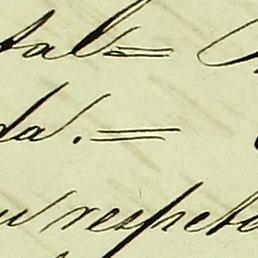 tal=
da.=
u respeta